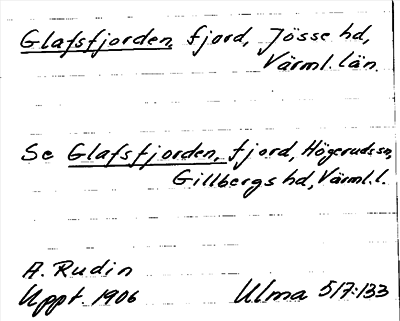 Glafsfjorden, fjord, Jösse hd,
Värml. län.
Se Glafsfjorden, fjord, Högerudssn,
Gillbergs hd, Värml. l.
A. Rudin
Uppt. 1906 Ulma 517:133